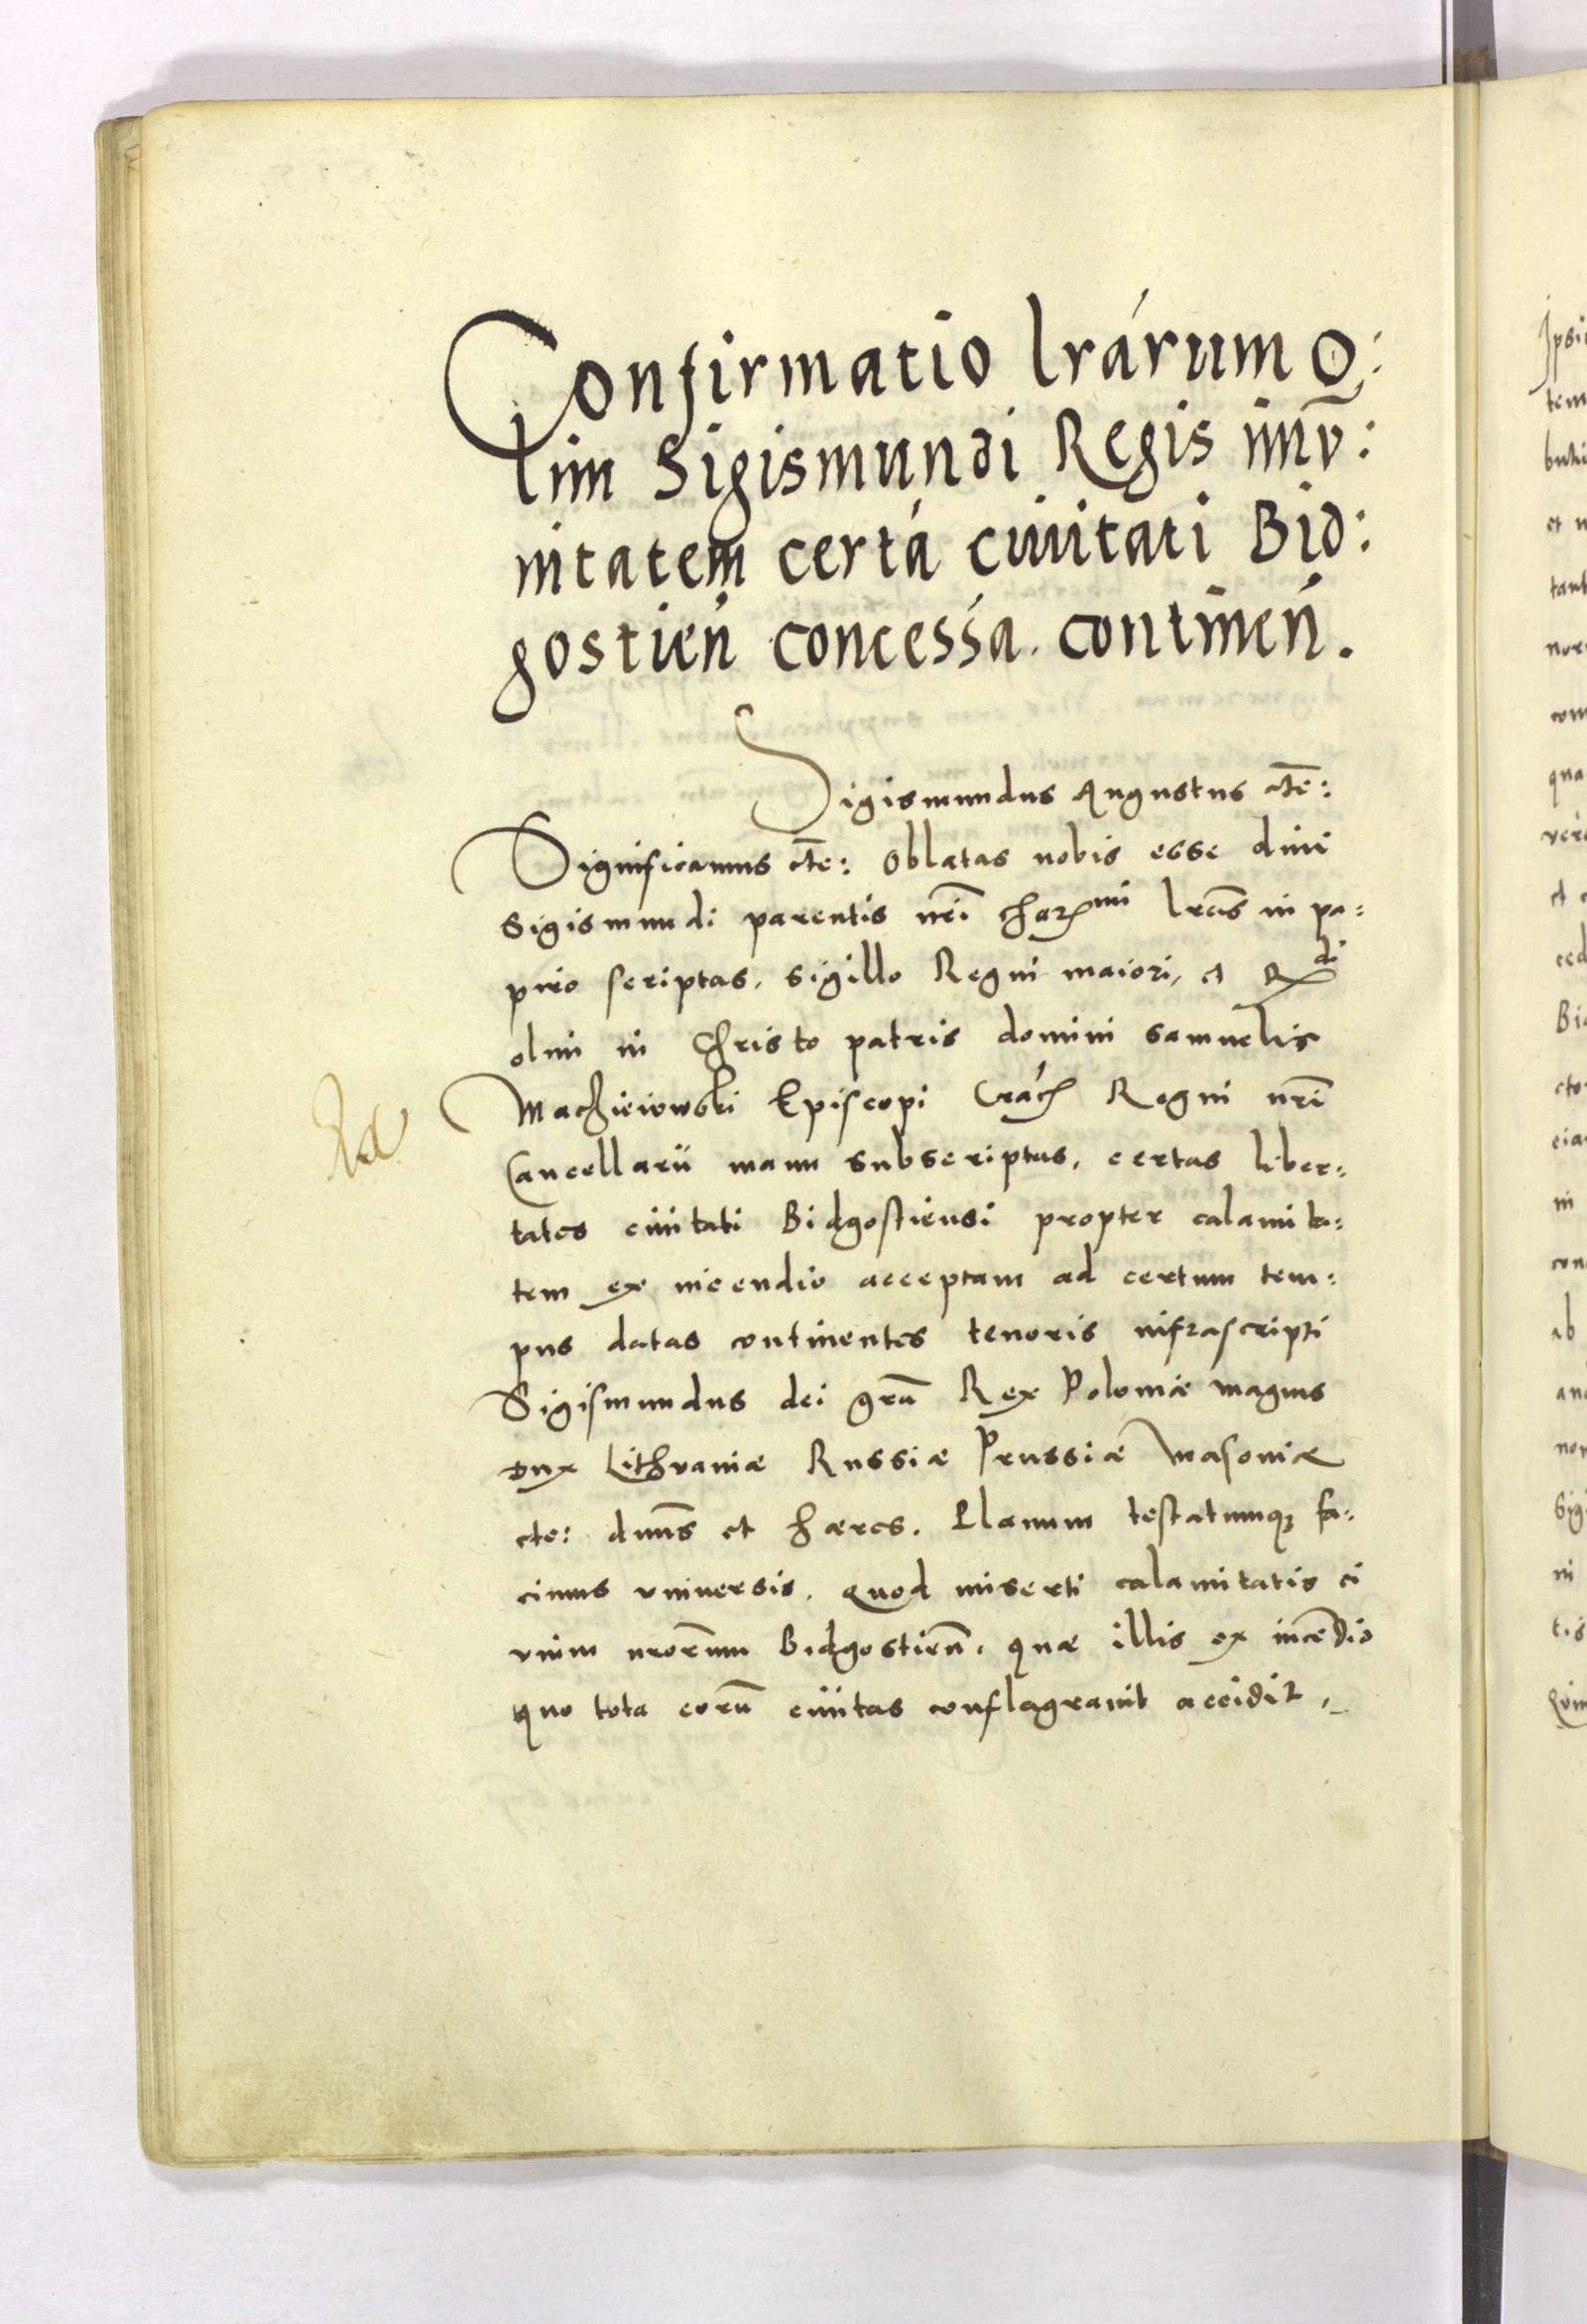 Confirmatio lrárum o:
lim Sigismundi Regis im̄v:
nitatem certá ciuitati Bid:
gostień concessá. contineń.
Sigismundus Augustus etc̄:
Significamus etc̄: Oblatas nobis esse diui
Sigismundi parentis nr̄i char^mi lrās in pa:
piro scriptas, sigillo Regni maiori, et R^di
olim in Christo patris domini Samuelis
Machieiowski Episcopi Crać Regni nr̄i
Cancellarii manu subscriptas, certas liber:
tates ciuitati Bidgostiensi propter calamita:
tem ex incendio acceptam ad certum tem:
pus datas continentes tenoris infrascripti
Sigismundus dei grā Rex Poloniæ magnus
Dux Lithvaniæ Russiæ Prussiæ Masoviæ
etc: dnūs et hæres. Planum testatumq; fa:
cimus vniuersis. Quod miserti calamitatis ci
vium nrorūm Bidgostień. quæ illis ex incēdio
quo tota eorū ciuitas conflagrauit accidit,
Ipsi
tem
buti
et n
tant
nor
com
qua
ced
Bi
cto
eia
in
con
ab
non
Sigi
ni
tis